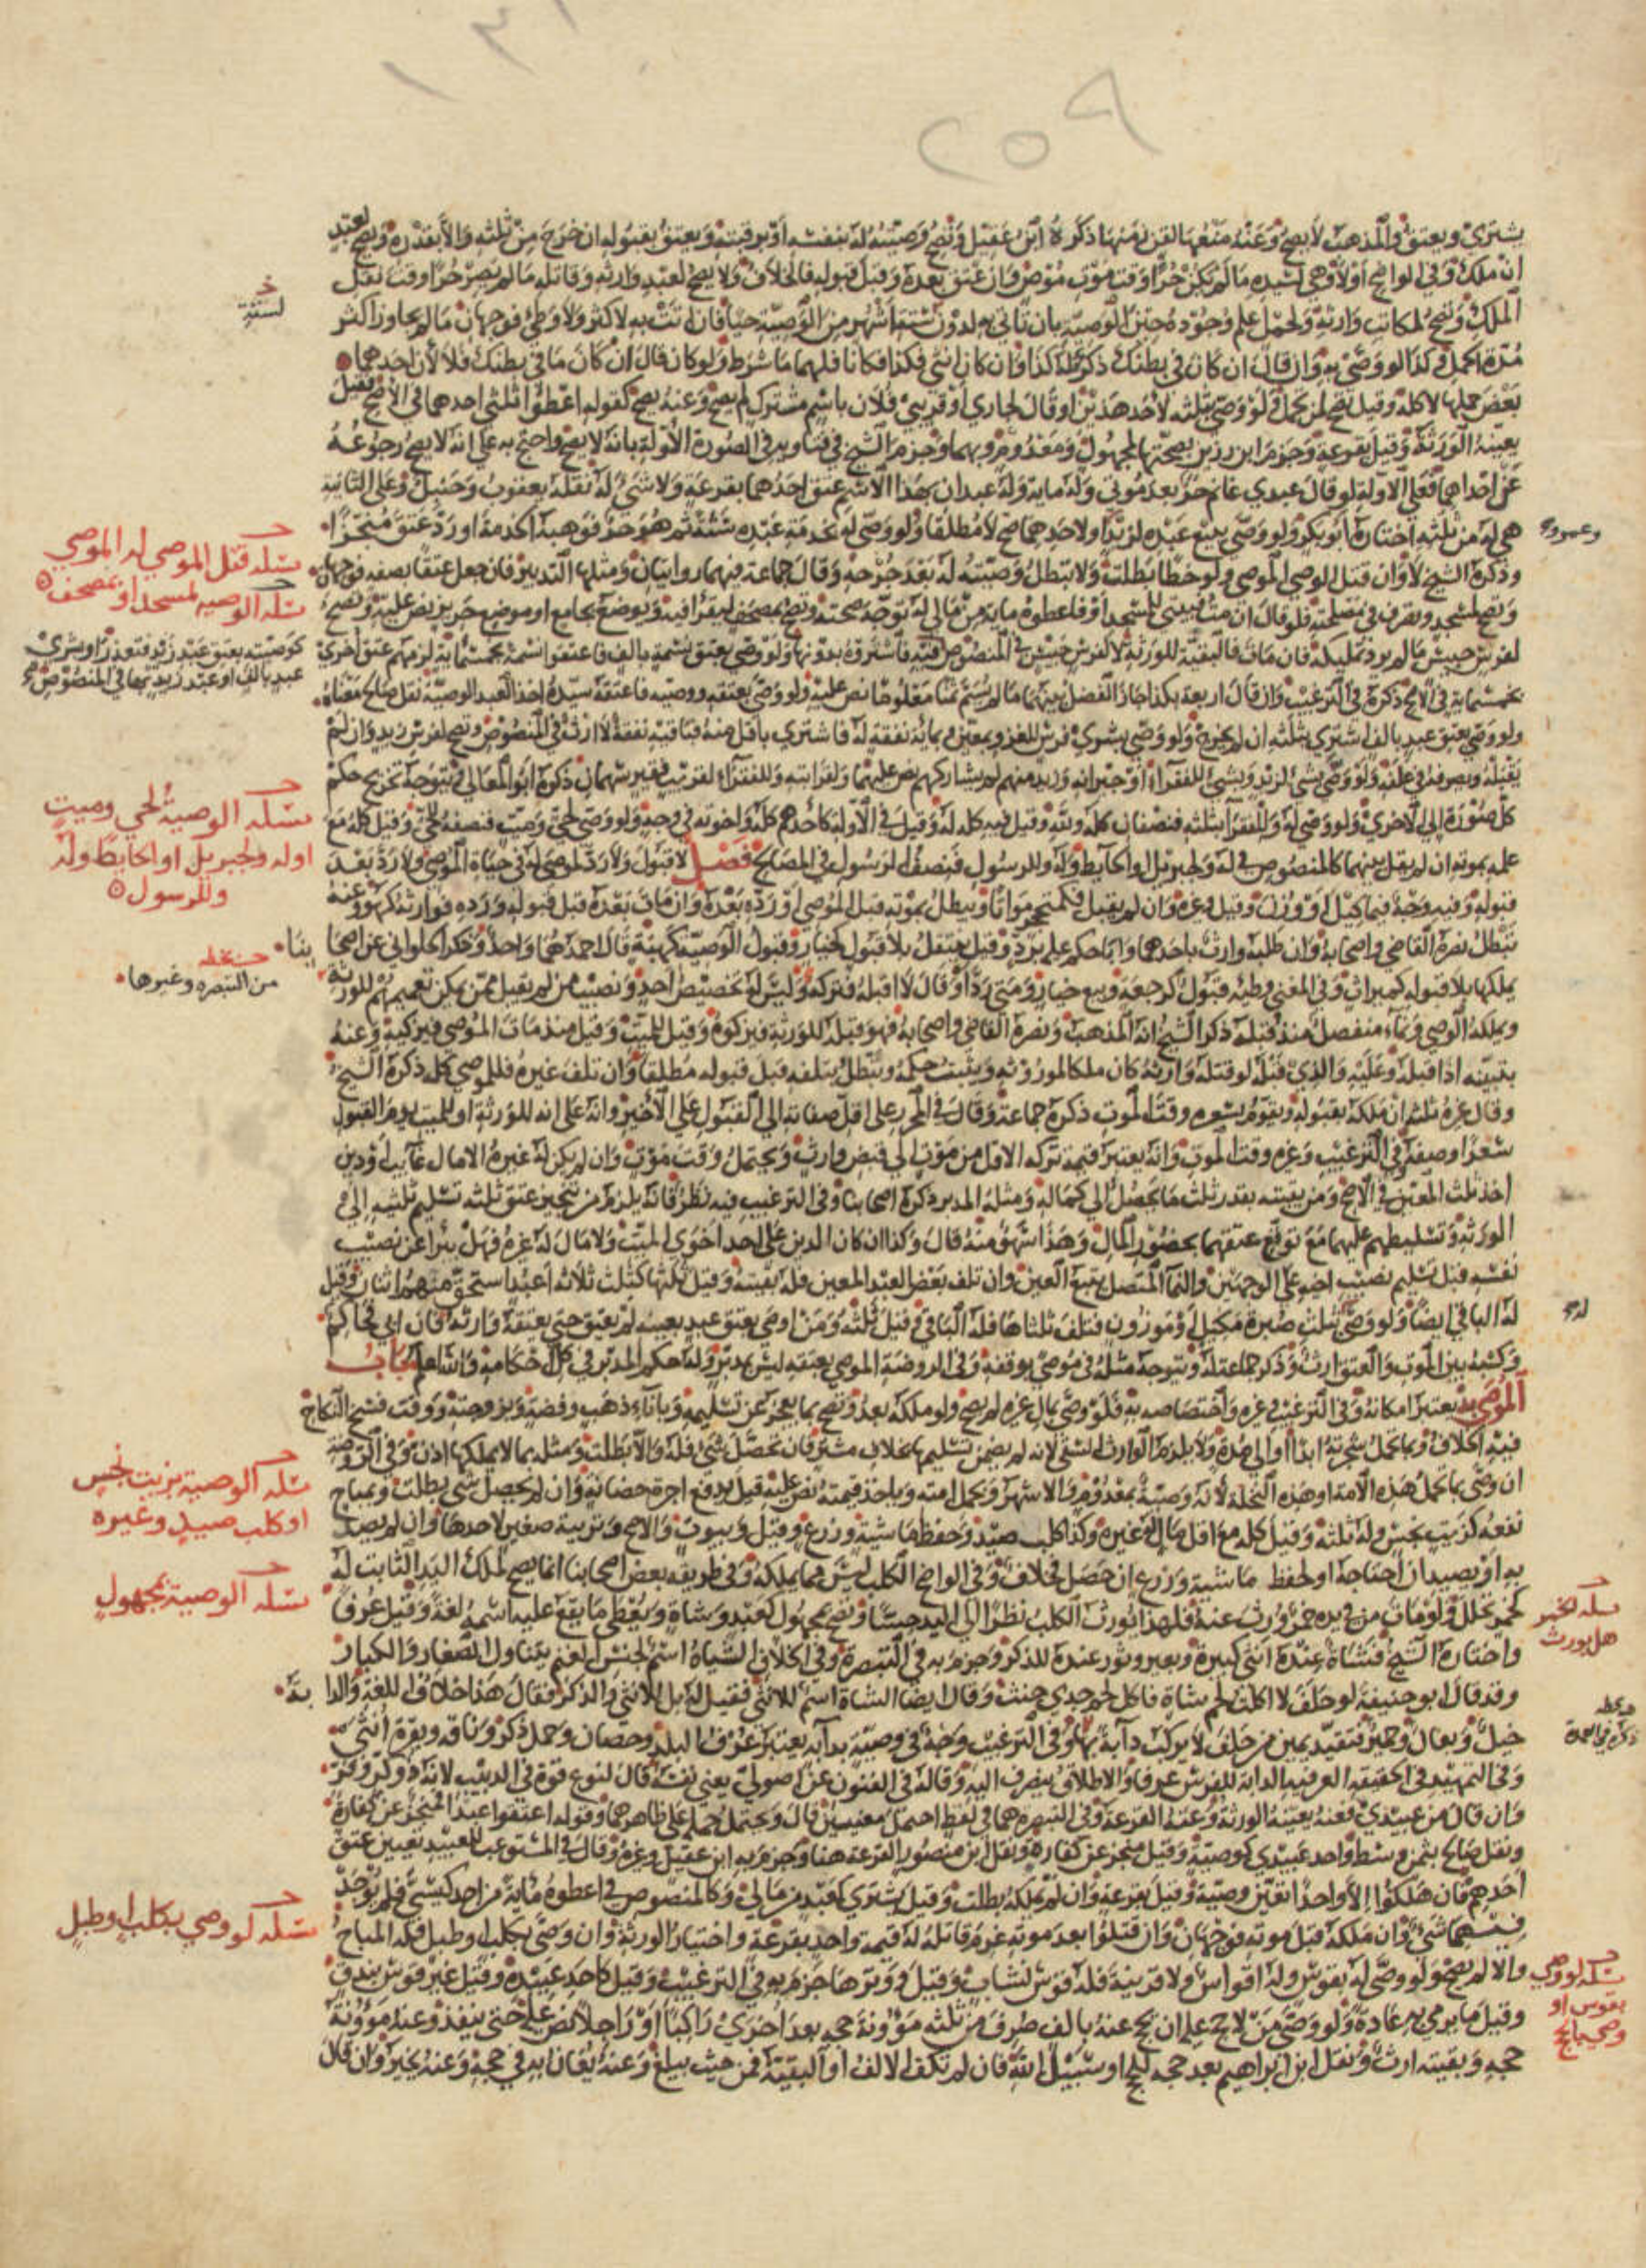 ٢٥٩
يشترى ويعتق والمذهب لا يصح وعنه منعها لقن زمنها ذكره ابن عقيل وتصح وصيته له بنفسه او برقبته ويعتق بقبوله ان خرج من ثلثه والا بقدره وتصح لعبد
ان ملك وفي الواضح او لا وهي لسيده ما لم يكن حرا وقت موت موص وان عتق بعده وقبل قبوله فالخلاف ولا يصح لعبد وارثه وقاتله ما لم يصر حرا وقت نقل
الملك وتصح لمكاتب وارثه ولحمل علم وجوده حين الوصية بان تاتي به لدون ستة اشهر من الوصية حيا فان اتت به لاكثر ولا وطئ فوجهان ما لم يجاوز اكثر
مدة الحمل وكذا لو وصى به وان قال ان كان في بطنك ذكر فله كذا وان كان انثى فكذا فكانا فلهما ما شرط ولو كان قال ان كان ما في بطنك فلا لان احدهما
بعض حملها لا كله وقيل تصح لمن تحمل ولو وصى بثلثه لاحد هذين او قال لجاري او قريبي فلان باسم مشترك لم يصح وعنه يصح كقوله اعطوا ثلثي احدهما في الاصح فقيل
يعينه الورثة وقيل بقرعة وجزم ابن رزين بصحتها لمجهول ومعدوم وبهما وجزم الشيخ في فتاويه في الصورة الاولة بانه لا يصح واحتج به على انه لا يصح رجوعه
عن احداهما فعلى الاولة لو قال عبدي غانم حر بعد موتي وله ماية وله عبدان بهذا الاسم عتق احدهما بقرعة ولا شيء له نقله يعقوب وحنبل وعلى الثانية
هي له من ثلثه اختاره ابو بكر ولو وصى ببيع عبده لزيد او لاحدهما صح لا مطلقا ولو وصى له بخدمة عبده سنة ثم هو حر فوهبه الخدمة او رد عتق منجزا
وذكره الشيخ لا وان قتل الوصي الموصي ولو خطا بطلت ولا تبطل وصيته له بعد جرحه وقال جماعة فيهما روايتان ومثلها التدبير فان جعل عتقا بصفة فوجهان
وتصح لمسجد وتصرف في مصلحته فلو قال ان مت فبيتي للمسجد او فاعطوه ماية من مالي له توجه صحته وتصح بمصحف ليقرا فيه ويوضع بجامع او موضع حريز نص عليه وتصح
لفرس حبيس ما لم يرد تمليكه فان مات فالبقية للورثة لا لفرس حبيس في المنصوص
بخمسماية في الاصح ذكره في الترغيب وان قال اربعة بكذا جاز الفضل بينهما ما لم يسم ثمنا معلوما نص عليه ولو وصى بعتقه ووصيه فاعتقه سيده اخذ العبد الوصية نقل صالح معناه
ولو وصى بعتق عبد بالف اشترى بثلثه ان لم يخرج ولو وصى بشرى فرس للغزو بمعين وبمائة نفقة له فاشترى باقل منه فباقيه نفقة لا ارث في المنصوص وتصح لفرس زيد وان لم
يقبله ويصرفه في علفه ولو وصى بشيء لزيد وبشيء للفقراء او جيرانه وزيد منهم لم يشاركهم نص عليهما ولقرابته وللفقراء لقريب فقير سهمان ذكره ابو المعالي ويتوجه تخريج حكم
كل صورة الى الاخرى ولو وصى له وللفقراء بثلثه فنصفان كله ولله وقيل فيه كله له وقيل في الاولة كاحدهم كله ولاخوته في وجه ولو وصى لحي وميت فنصفه للحي وقيل كله مع
علمه بموته ان لم يقل بينهما كالمنصوص في له ولجبريل والحايط وله وللرسول فنصف الرسول في المصالح فصل لا قبول ولا رد لموصى له في حياة الموصي ولا رد بعد
قبوله وفيه وجه فيما كيل او وزن وقيل وغيره وان لم يقبل فكمتحجر مواتا وتبطل بموته قبل الموصي او رده بعده وان مات بعده قبل قبوله ورده فوارثه كهو وعنه
تبطل نصره القاضي واصحابه وان طلبه وارث باحدهما وابى حكم عليه برد وقيل ينتقل بلا قبول كخيار وقبول الوصية كهبة قال احمد هما واحد وذكر الحلواني عن اصحابنا
يملكها بلا قبوله كميراث وفي المغني وطئه قبول كرجعة وبيع خيار ومتى رد او قال لا اقبله فتركه وليس له تخصيص احد ونصيب من لم يقبل ممن يمكن تعميمهم للورثة
ويملكه الوصي ونماء منفصل منذ قبله ذكر الشيخ انه المذهب ونصره القاضي واصحابه فهو قبله للورثة فيزكوه وقيل للميت وقيل منذ مات الموصي فيزكيه وعنه
يتبينه اذا قبله وعليه والذي قبله لو قبله وارثه كان ملكا لموروثه ويثبت حكمه وتبطل بتلفه قبل قبوله مطلقا وان تلف غيره فللموصى كله ذكره الشيخ
وقال غيره ثلثه ان ملكه بقبوله ويقوم بسعره وقت الموت ذكره جماعة وقال في المحرر على اقل صفاته الى القبول على الاخير وانه على انه للورثة او للميت يوم القبول
سعرا وصفة وفي الترغيب وغيره وقت الموت وانه يعتبر قيمة تركه الاقل من موت الى قبض وارث ويحتمل وقت موت وان لم يكن له غيره الا مال غايب او دين
اخذ ثلث المعين في الاصح ومن بقيته بقدر ثلث ما يحصل الى كماله ومثله المدبر ذكره اصحابنا وفي الترغيب فيه نظر فانه يلزم من تنجيز عتق ثلثه تسليم ثلثيه الى
الورثة وتسليطهم عليهما مع توقع عتقهما بحضور المال وهذا سهو منه قال وكذا ان كان الدين على احد اخوي الميت ولا مال له غيره فهل يبرا عن نصيب
نفسه قبل تسليم نصيب اخيه على الوجهين والنما المتصل يتبع العين وان تلف بعض العبد المعين فله بقيته وقيل ثلثها كثلث ثلاثة اعبد استحق منهم اثنان وقيل
له الباقي ايضا ولو وصى بثلث صبرة مكيل وموزون فتلف ثلثاها فله الباقي وقيل ثلثه ومن اوصى بعتق عبد بعينه لم يعتق حتى يعتقه وارثه فان ابى فحاكم
وكسبه بين الموت والعتق ارث وذكر جماعة له ويتوجه مثله في موصى بوقفه وفي الروضة الموصى بعتقه ليس بمدبر وله حكم المدبر في كل احكامه والله اعلم باب
الموصى به يعتبر امكانه وفي الترغيب وغيره واختصاصه به فلو وصى بمال غيره لم يصح ولو ملكه بعد وتصح بما يعجز عن تسليمه وباناء ذهب وفضة وبزوجته ووقت فسخ النكاح
فيه الخلاف وبما تحمل شجرته ابدا او الى مدة ولا يلزم الوارث السقي لانه لم يضمن تسليمها بخلاف مشتر فان تحصل شيء فله والا بطلت ومثله بما لا يملكها اذن وفي الروضة
ان وصى بما تحمل هذه الامة او هذه النخلة لانه وصية بمعدوم والاشهر وبحمل امته وياخذ قيمته نص عليه قيل يدفع اجرة حضانته وان لم يحصل شي بطلت وبمباح
نفعه كزيت نجس وله ثلثه وقيل كله مع اقل مال له غيره وكذا كلب صيد وحفظ ماشية وزرع وقيل وبيوت والاصح وتربية صغير لاحدها وان لم يصد
به او يصيد ان احتاجه او لحفظ ماشية وزرع ان حصل فخلاف وفي الواضح الكلب ليس مما يملكه وفي طريقة بعض اصحابنا انما يصح لملك اليد الثابت له
كخمر تخلل ولو مات من في يده خمر ورث عنه فلهذا يورث الكلب نظرا الى اليد حسا وتصح بمجهول كعبد وشاة ويعطى ما يقع عليه اسمه لغة وقيل عرفا
واختاره الشيخ فشاة عنده انثى كبيرة وبعير وثور عنده للذكر وجزم به في التبصرة وفي الخلاف الشياه اسم لجنس الغنم يتناول الصغار والكبار
وقد قال ابو حنيفة لو حلف لا اكلت لحم شاة فاكل لحم جدي حنث وقال ايضا الشاة اسم للانثى فقيل له بل للانثى والذكر فقال هذا خلاف اللغة والدابة
خيل وبغال وحمير فتقيد يمين من حلف لا يركب دابة بها وفي الترغيب وجه في وصيته بدابة يعتبر عرف البلد وحصان وجمل ذكر وناقة وبقرة انثى
وفي التمهيد في الحقيقة العرفية الدابة للفرس عرفا والاطلاق ينصرف اليه وقاله في الفنون عن اصولي يعني نفسه قال لنوع قوة في الدبيب لانه ذو كر وفر
وان قال من عبيدي فعنه يعينه الورثة وعنه القرعة وفي التبصرة هما في لفظ احتمل معنيين قال ويحتمل حمله على ظاهرهما وقوله اعتقوا عبدا كمجز عن كفارة
ونقل صالح بثمن وسط واحد عبيدي كوصية وقيل مجز عن كفارة ونقل ابن منصور القرعة هنا وجزم به ابن عقيل وغيره وقال في المستوعب للعبيد تعيين عتق
احدهم فان هلكوا الا واحدا تعين وصية وقيل بقرعة وان لم يملكه بطلت وقيل يشترى كعبد من مالي وكالمنصوص في اعطوه مائة من احد كيسي فلم يوجد
فيهما شيء وان ملكه قبل موته فوجهان وان قتلوا بعد موته غرم قاتله له قيمة واحد بقرعة واختيار الورثة وان وصى بكلب او طبل فله المباح
والا لم يصح ولو وصى له بقوس وله اقواس ولا قرينة فله قوس نشاب وقيل ووترها جزم به في الترغيب وقيل كاحد عبيده وقيل غير قوس بندق
وقيل ما يرمي به عادة ولو وصى من لا حج عليه ان يحج عنه بالف صرف من ثلثه مؤونة حجة بعد اخرى راكبا او راجلا نص عليه حتى ينفذ وعنه مؤونة
حجه وبقيته ارث ونقل ابن ابراهيم بعد حجه للحج او سبيل الله فان لم تكف الالف او البقية فمن حيث يبلغ وعنه يعان به في حجه وعنه يخير وان قال
وعمرو صح
مسلة قتل الموصى له الموصي
مسلة الوصيه لمسجد او بمصحف
كوصيته بعتق عبد زيد فتعذر او بشرى
عبد بالف او عبد زيد بها في المنصوص صح
مسلة الوصية لحي وميت
او له ولجبريل او الحايط وله
وللرسول
من التبصره وغيرها
مسلة الوصية بزيت نجس
او كلب صيد وغيره
مسلة الوصية بمجهول
مسلة الخمر
هل يورث
مسلة لو وصي بكلب او طبل
مسلة لو وصي
بقوس او
وصي بالحج